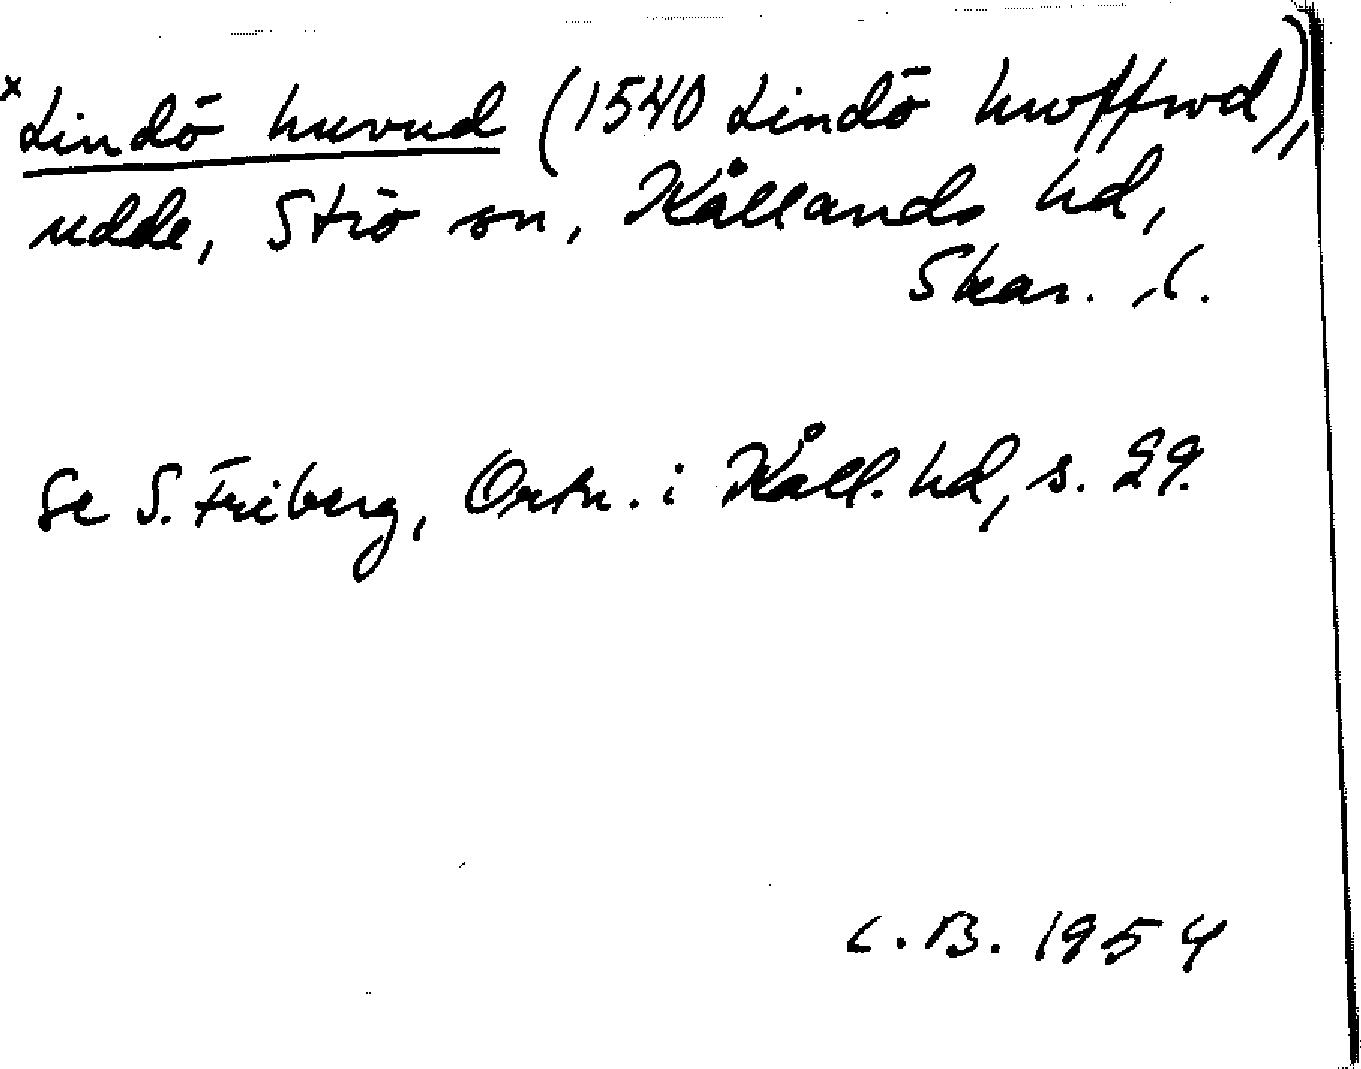 × Lindö huvud (1540 Lindö hwffwd),
udde, Strö sn, Kållands hd,
Skar. l.
Se S. Friberg, Ortn. i Kåll. hd, s. 29.
C. B. 1954